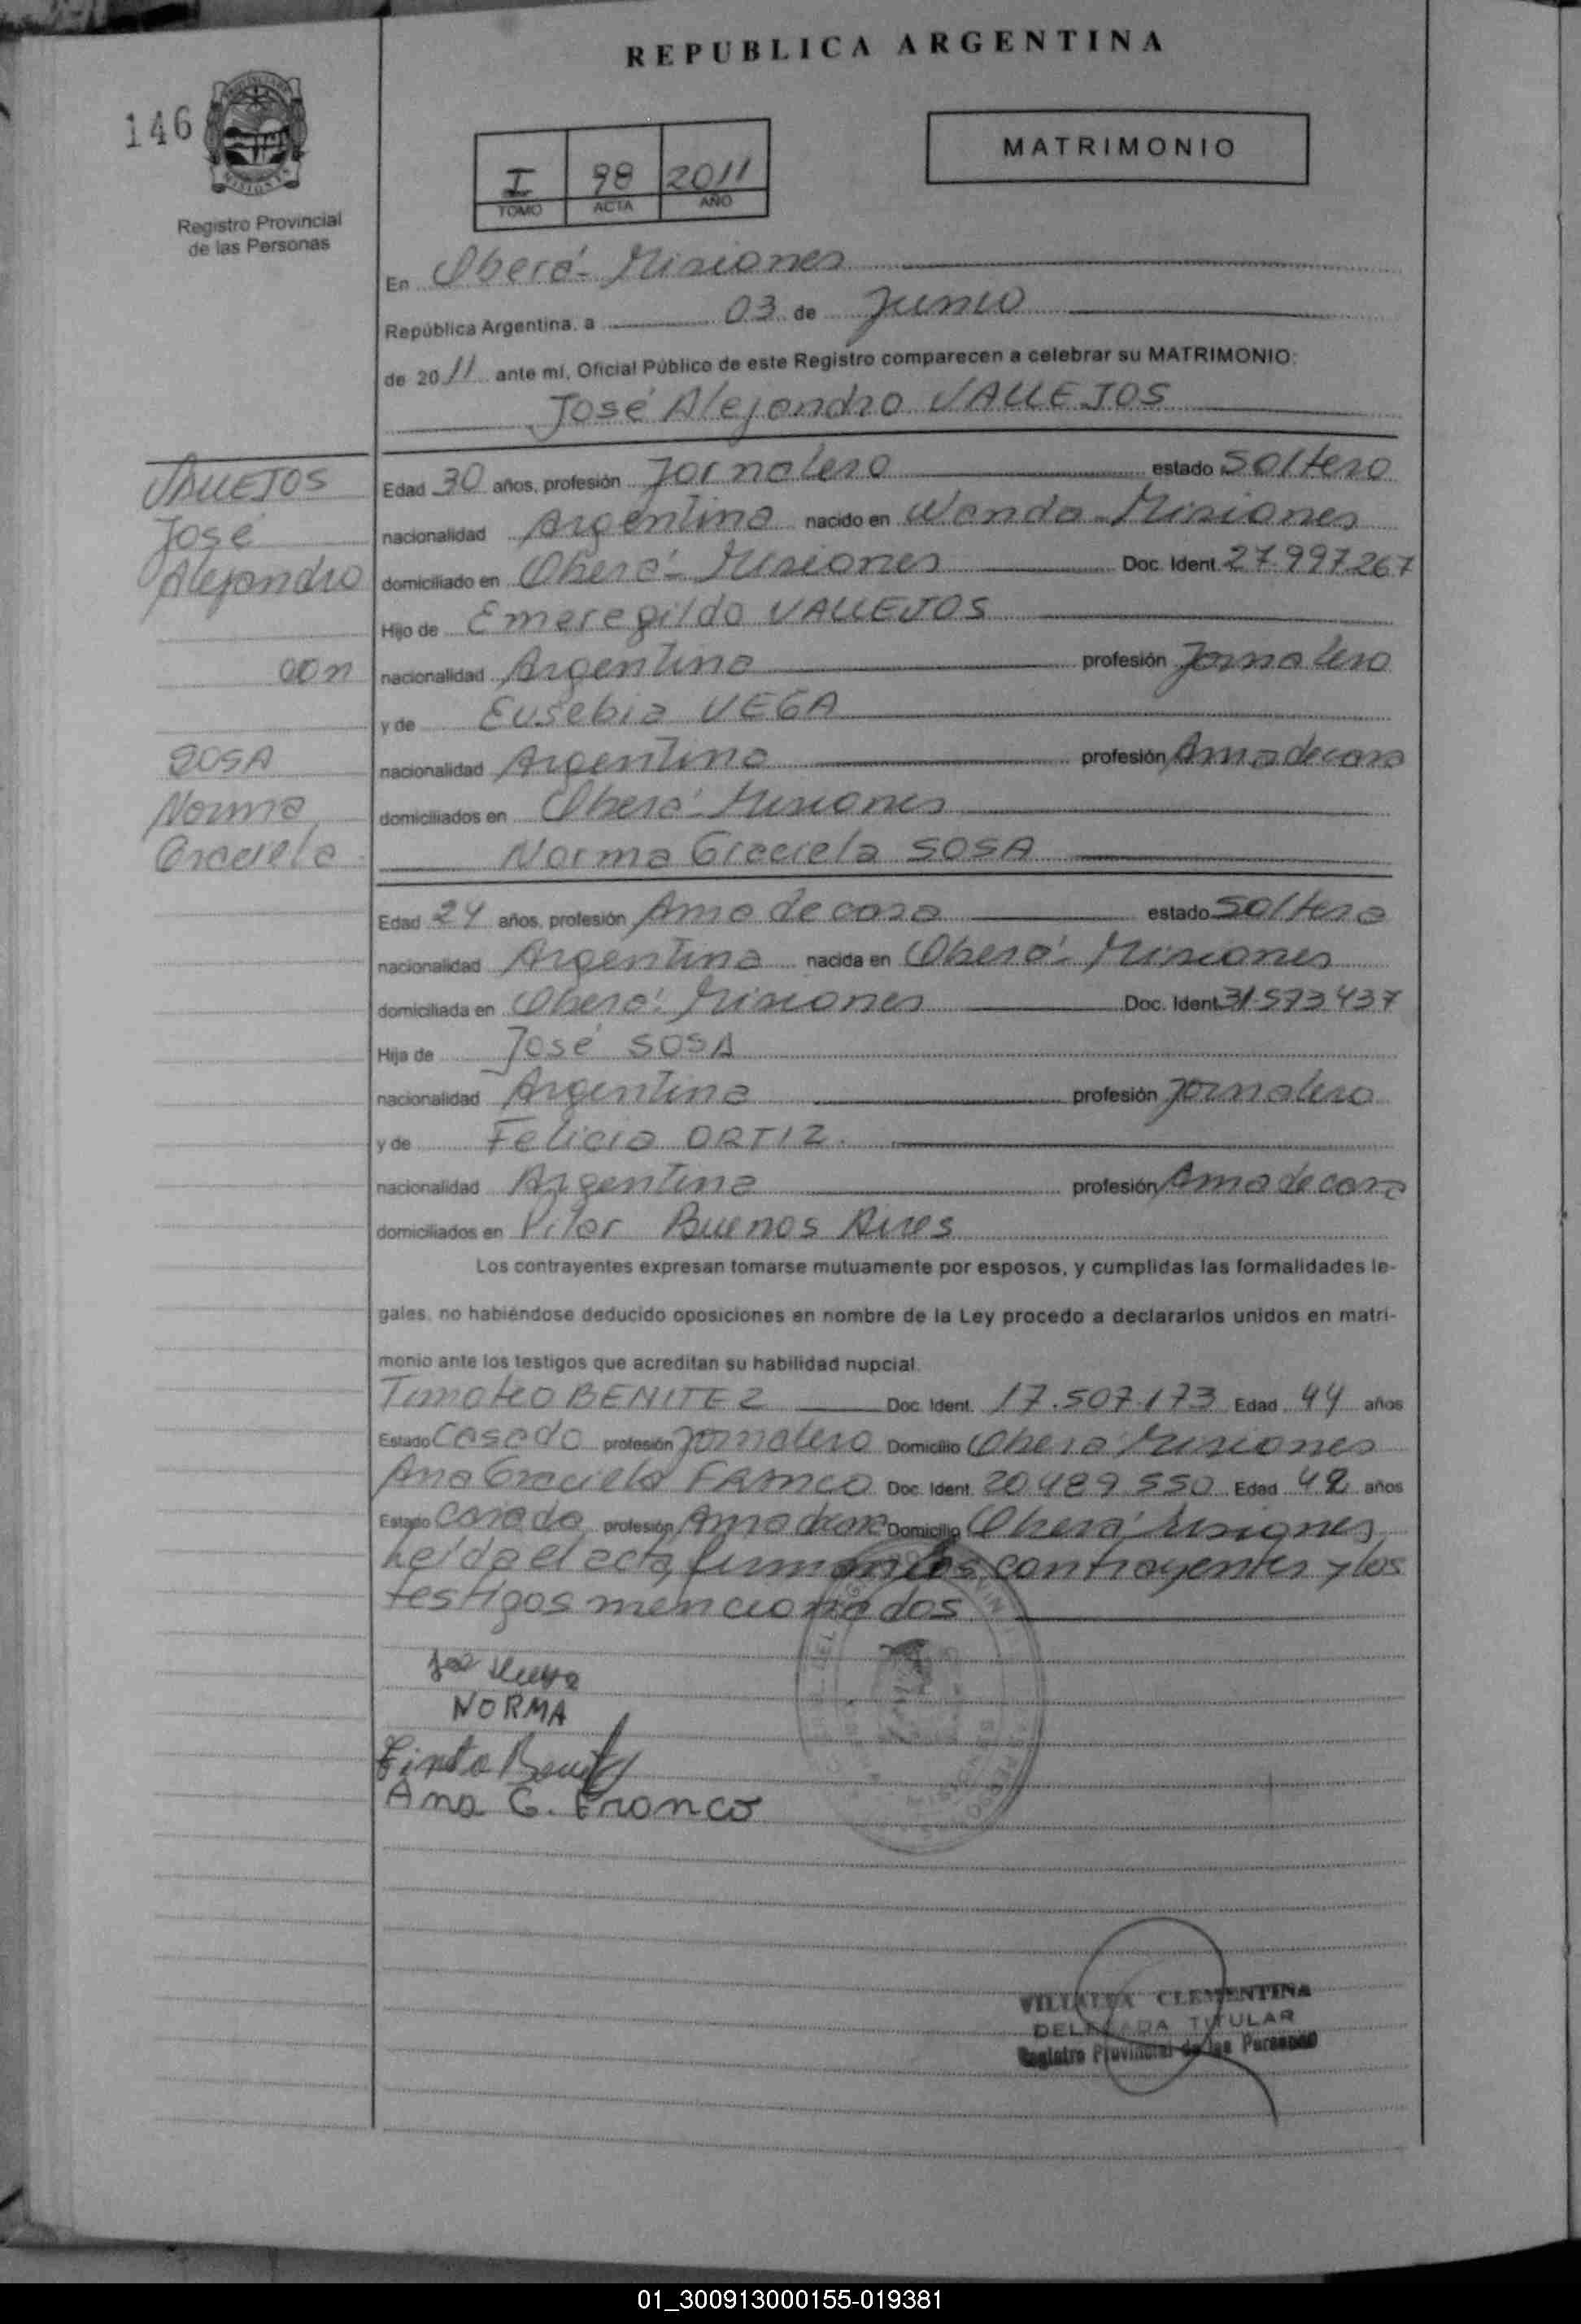 REPUBLICA ARGENTINA
146
MATRIMONIO
I 98 2011
TOMO ACTA AÑO
Registro Provincial
de las Personas
En Oberá - Misiones
República Argentina, a 03 de Junio
de 2011 ante mí, Oficial Público de este Registro comparecen a celebrar su MATRIMONIO:
José Alejandro VALLEJOS
VALLEJOS
José
Alejandro
con
SOSA
Norma
Graciela
Edad 30 años, profesión Jornalero estado soltero
nacionalidad Argentina nacido en Wanda - Misiones
domiciliado en Oberá - Misiones Doc. Ident. 27.997.267
Hijo de Emeregildo VALLEJOS
nacionalidad Argentina profesión Jornalero
y de Eusebia VEGA
nacionalidad Argentina profesión Ama de casa
domiciliados en Oberá - Misiones
Norma Graciela SOSA
Edad 24 años, profesión Ama de casa estado soltera
nacionalidad Argentina nacida en Oberá - Misiones
domiciliada en Oberá - Misiones Doc. Ident. 31.573.437
Hija de José SOSA
nacionalidad Argentina profesión Jornalero
y de Felicia ORTIZ.
nacionalidad Argentina profesión Ama de casa
domiciliados en Pilar Buenos Aires
Los contrayentes expresan tomarse mutuamente por esposos, y cumplidas las formalidades le-
gales, no habiéndose deducido oposiciones en nombre de la Ley procedo a declararlos unidos en matri-
monio ante los testigos que acreditan su habilidad nupcial.
Timoteo BENITEZ Doc. Ident. 17.507.173 Edad 44 años
Estado Casado profesión Jornalero Domicilio Oberá Misiones
Ana Graciela FRANCO Doc. Ident. 20.489.550 Edad 42 años
Estado Casada profesión Ama de casa Domicilio Oberá Misiones
Leída el acta, firman los contrayentes y los
testigos mencionados
NORMA
Ana G. Franco
VILLALVA CLEMENTINA
DELEGADA TITULAR
Registro Provincial de las Personas
01_300913000155-019381